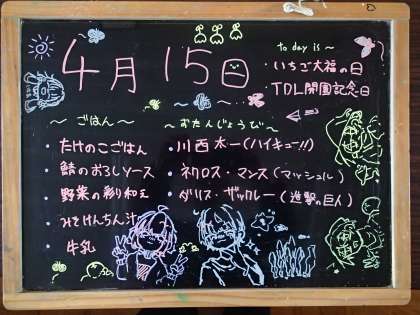 4月15日
to day is～
・いちご大福の日
・TDL開園記念日
～ごはん～
・たけのこごはん
・鯖のおろしソース
・野菜の彩り和え
・みそけんちん汁
・牛乳
～おたんじょうび～
・川西太一(ハイキュー!!)
・ネロス・マンス(マッシュル)
・ダリス・ザックレー(進撃の巨人)